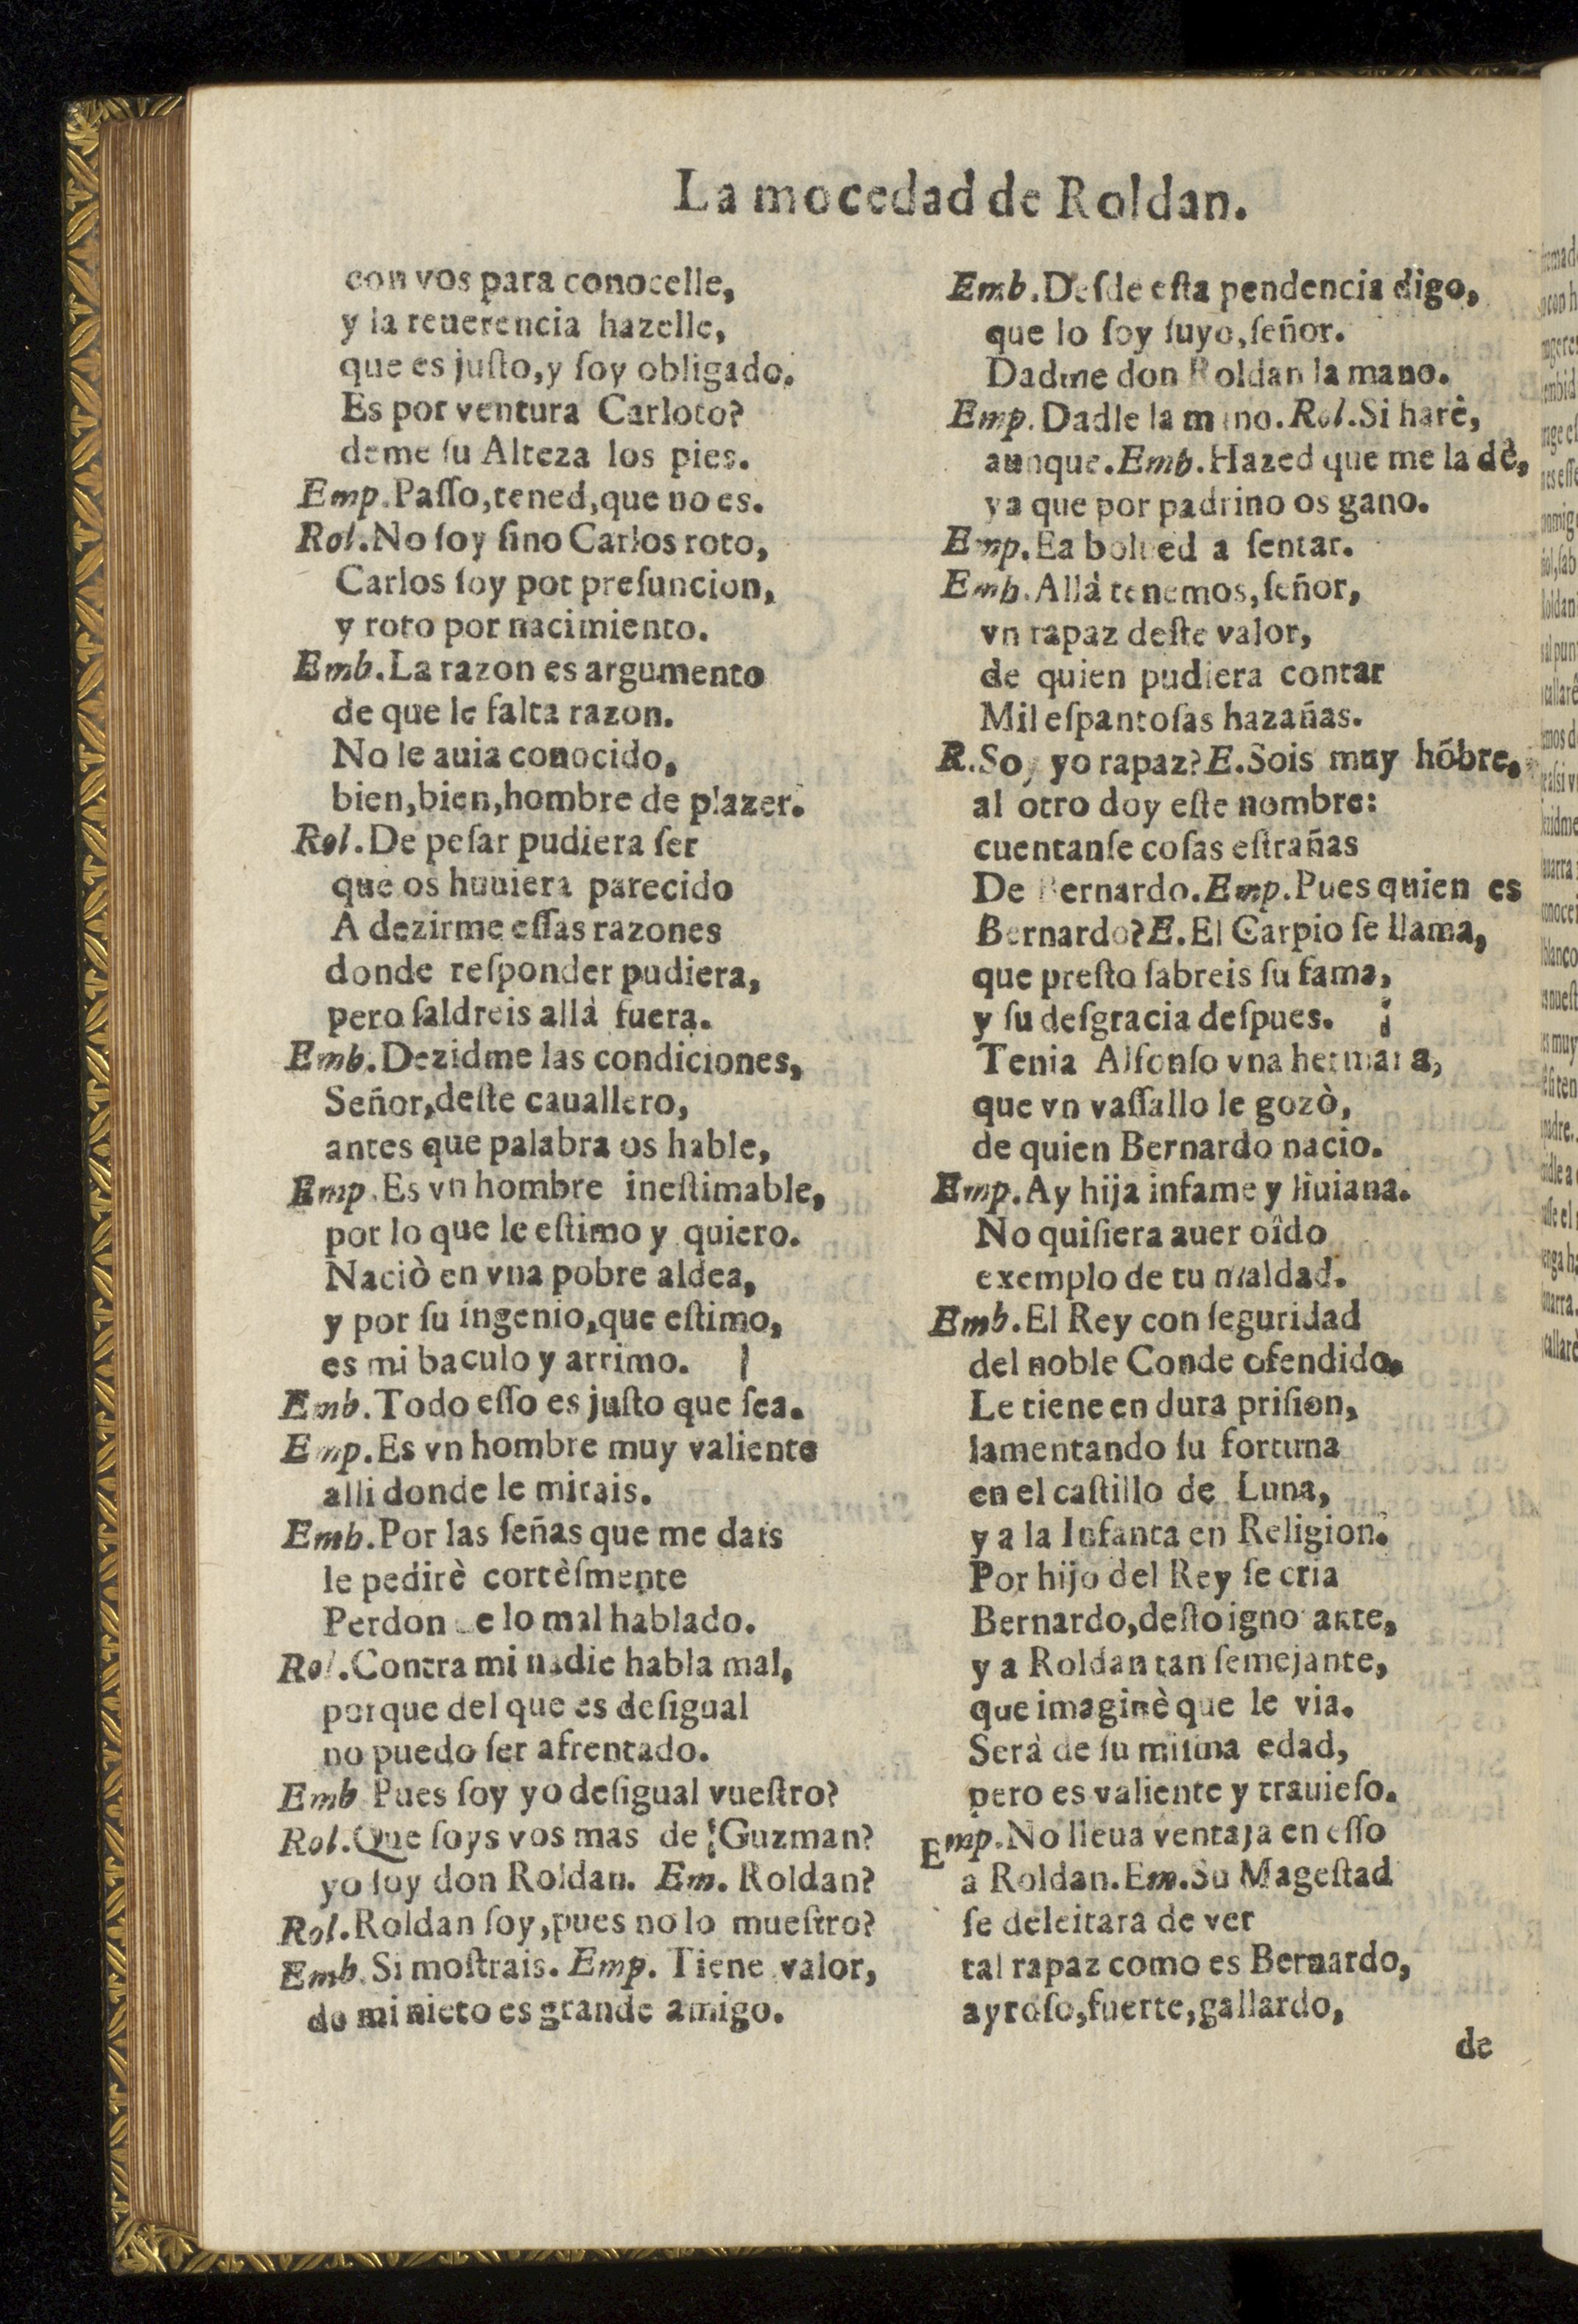 La mocedad de Roldan.
con vos para conocelle,
y la reuerencia hazelle,
que es juſto,y ſoy obligado.
Es por ventura Carloto?
deme ſu Alteza los pies.
Emp.Paſſo,tened,que no es.
Rol.No ſoy ſino Carlos roto,
Carlos ſoy por preſuncion,
y roto por nacimiento.
Emb.La razon es argumento
de que le falta razon.
No le auia conocido,
bien,bien,hombre de plazer.
Rol.De peſar pudiera ſer
que os huuiera parecido
A dezirme eſſas razones
donde reſponder pudiera,
pero ſaldreis allà fuera.
Emb.Dezidme las condiciones,
Señor,deſte cauallero,
antes que palabra os hable,
Emp.Es vn hombre ineſtimable,
por lo que le eſtimo y quiero.
Naciò en vna pobre aldea,
y por ſu ingenio,que eſtimo,
es mi baculo y arrimo.
Emb.Todo eſſo es juſto que ſea.
Emp.Es vn hombre muy valiente
alli donde le mirais.
Emb.Por las ſeñas que me dais
le pedirè cortèſmente
Perdon de lo mal hablado.
Rol.Contra mi nadie habla mal,
porque del que es deſigual
no puedo ſer afrentado.
Emb Pues ſoy yo deſigual vueſtro?
Rol.Que ſoys vos mas de Guzman?
yo ſoy don Roldan. Em. Roldan?
Rol.Roldan ſoy,pues no lo mueſtro?
Emb.Si moſtrais. Emp. Tiene valor,
de mi nieto es grande amigo.
Emb.Deſde eſta pendencia digo,
que lo ſoy ſuyo,ſeñor.
Dadme don Roldan la mano.
Emp.Dadle la mano.Rol.Si harè,
aunque.Emb.Hazed que me la dè,
ya que por padrino os gano.
Emp.Ea bolued a ſentar.
Emb.Allà tenemos,ſeñor,
vn rapaz deſte valor,
de quien pudiera contar
Mil eſpantoſas hazañas.
R.Soy yo rapaz?E.Sois muy hõbre,
al otro doy eſte nombre:
cuentanſe coſas eſtrañas
De Bernardo.Emp.Pues quien es
Bernardo?E.El Carpio ſe llama,
que preſto ſabreis ſu fama,
y ſu deſgracia deſpues.
Tenia Alfonſo vna hermana,
que vn vaſſallo le gozò,
de quien Bernardo nacio.
Emp.Ay hija infame y liuiana.
No quiſiera auer oîdo
exemplo de tu maldad.
Emb.El Rey con ſeguridad
del noble Conde ofendido,
Le tiene en dura priſion,
lamentando ſu fortuna
en el caſtillo de Luna,
y a la Infanta en Religion.
Por hijo del Rey ſe cria
Bernardo,deſto ignorante,
y a Roldan tan ſemejante,
que imaginè que le via.
Serà de ſu miſma edad,
pero es valiente y trauieſo.
Emp.No lleua ventaja en eſſo
a Roldan.Em.Su Mageſtad
ſe deleitara de ver
tal rapaz como es Bernardo,
ayroſo,fuerte,gallardo,
de